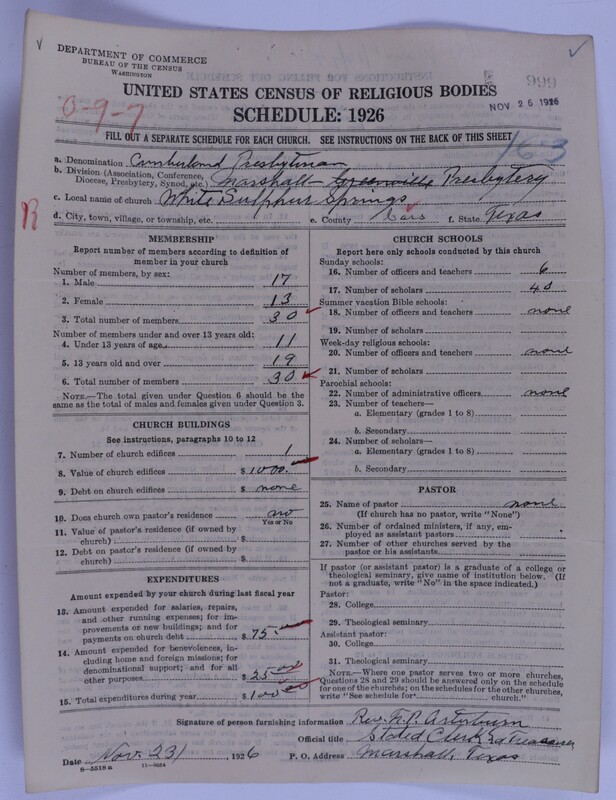 DEPARTMENT OF COMMERCE
BUREAU OF THE CENSUS
WASHINGTON
999
NOV 26 1926
UNITED STATES CENSUS OF RELIGIOUS BODIES
SCHEDULE: 1926
0-9-7
FILL OUT A SEPARATE SCHEDULE FOR EACH CHURCH. SEE INSTRUCTIONS ON THE BACK OF THIS SHEET
163
a. Denomination Cumberland Presbyterian
b. Division (Association, Conference, Diocese, Presbytery, Synod, etc.) Marshall Greenville Presbytery
c. Local name of church White Sulphur Springs
R
d. City, town, village, or township, etc. e. County Cass f. State Texas
MEMBERSHIP
Report number of members according to definition of
member in your church
Number of members, by sex:
1. Male 17
2. Female 13
3. Total number of members 30
Number of members under and over 13 years old:
4. Under 13 years of age 11
5. 13 years old and over 19
6. Total number of members 30
NOTE.—The total given under Question 6 should be
same as the total of males and females given under Question 3.
CHURCH BUILDINGS
See instructions, paragraphs 10 to 12
7. Number of church edifices 1
8. Value of church edifices $ 1000.
9. Debt on church edifices $ none
10. Does church own pastor's residence no
Yes or No
11. Value of pastor's residence (if owned by
church) $
12. Debt on pastor's residence (if owned by
church) $
EXPENDITURES
Amount expended by your church during last fiscal year
13. Amount expended for salaries, repairs,
and other running expenses; for im-
provements or new buildings; and for
payments on church debt $ 75.00
14. Amount expended for benevolences, in-
cluding home and foreign missions; for
denominational support; and for all
other purposes $ 25.00
15. Total expenditures during year $ 100.00
CHURCH SCHOOLS
Report here only schools conducted by this church
Sunday schools:
16. Number of officers and teachers 6
17. Number of scholars 40
Summer vacation Bible schools:
18. Number of officers and teachers none
19. Number of scholars
Week-day religious schools:
20. Number of officers and teachers none
21. Number of scholars
Parochial schools:
22. Number of administrative officers none
23. Number of teachers—
a. Elementary (grades 1 to 8)
b. Secondary
24. Number of scholars—
a. Elementary (grades 1 to 8)
b. Secondary
PASTOR
25. Name of pastor none
(If church has no pastor, write "None")
26. Number of ordained ministers, if any, em-
ployed as assistant pastors
27. Number of other churches served by the
pastor or his assistants
If pastor (or assistant pastor) is a graduate of a college or
theological seminary, give name of institution below. (If
not a graduate, write "No" in the space indicated.)
Pastor:
28. College
29. Theological seminary
Assistant pastor:
30. College
31. Theological seminary
NOTE.—Where one pastor serves two or more churches,
Questions 28 and 29 should be answered only on the schedule
for one of the churches; on the schedules for the other churches,
write "See schedule for church."
Signature of person furnishing information Rev. N.P. Arterburn
Official title Stated Clerk and Treasurer
Date Nov. 23, 1926 P. O. Address Marshall, Texas
8-5518 a